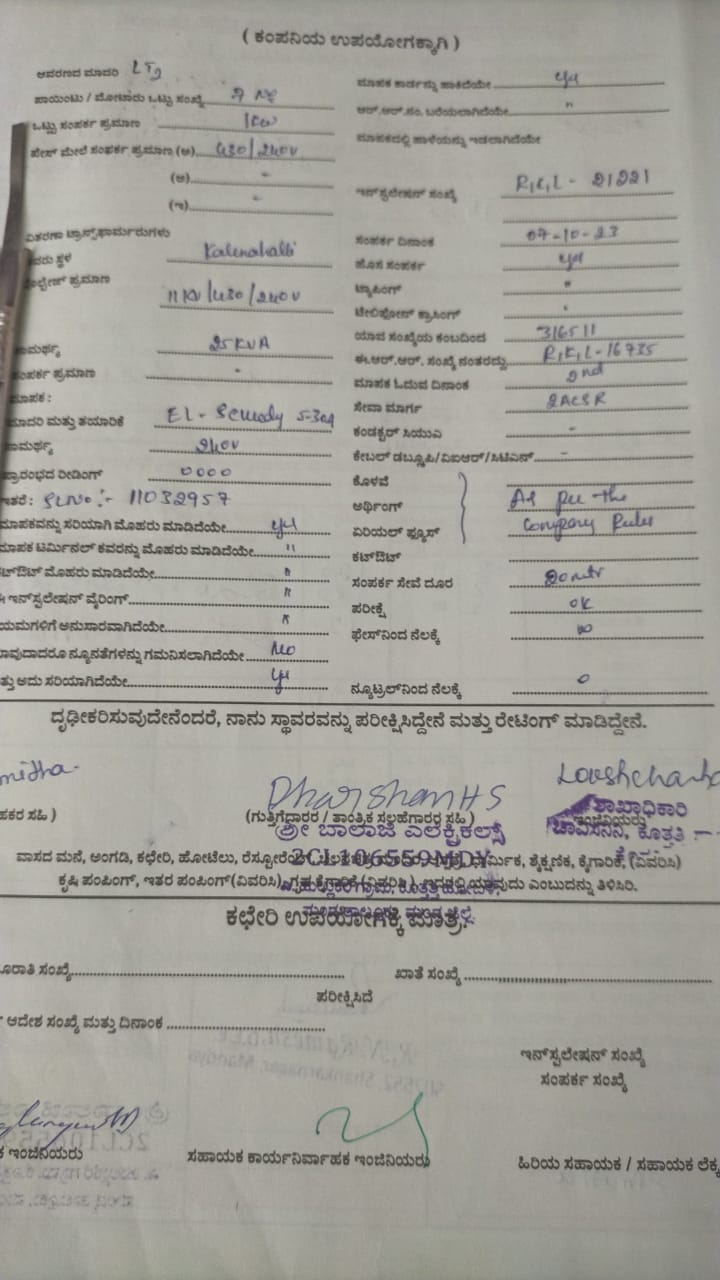 ( ಕಂಪನಿಯ ಉಪಯೋಗಕ್ಕಾಗಿ )
ಆವರಣದ ಮಾದರಿ LT2
ಮಾಪಕ ಕಾರ್ಡನ್ನು ಹಾಕಿದೆಯೇ yes
ಪಾಯಿಂಟು / ಮೋಟಾರು ಒಟ್ಟು ಸಂಖ್ಯೆ 7 No
ಆರ್.ಆರ್.ಸಂ. ಬರೆಯಲಾಗಿದೆಯೇ "
ಒಟ್ಟು ಸಂಪರ್ಕ ಪ್ರಮಾಣ 1KW
ಮಾಪಕದಲ್ಲಿ ಹಾಳೆಯನ್ನು ಇಡಲಾಗಿದೆಯೇ
ಫೇಸ್ ಮೇಲೆ ಸಂಪರ್ಕ ಪ್ರಮಾಣ (ಅ) 430/240V
(ಆ) -
ಇನ್‌ಸ್ಟಲೇಷನ್ ಸಂಖ್ಯೆ R,K,L - 21221
(ಇ) -
ವಿತರಣಾ ಟ್ರಾನ್ಸ್‌ಫಾರ್ಮರುಗಳು
ಸಂಪರ್ಕ ದಿನಾಂಕ 07-10-23
ಸ್ಥಳ Kalenahalli
ಹೊಸ ಸಂಪರ್ಕ yes
ಪ್ರಮಾಣ 11KV/430/240V
ಟ್ಯಾಪಿಂಗ್ "
ಟೆಲಿಫೋನ್ ಕ್ರಾಸಿಂಗ್
ಯಾವ ಸಂಖ್ಯೆಯ ಕಂಬದಿಂದ 316511
ಸಾಮರ್ಥ್ಯ 25KVA
ಈ.ಆರ್.ಆರ್. ಸಂಖ್ಯೆ ನಂತರದ್ದು R,K,L-16735
ಸಂಪರ್ಕ ಪ್ರಮಾಣ -
ಮಾಪಕ ಓದುವ ದಿನಾಂಕ 2nd
ಮಾಪಕ :
ಸೇವಾ ಮಾರ್ಗ 2ACSR
ಮಾದರಿ ಮತ್ತು ತಯಾರಿಕೆ EL-
ಕಂಡಕ್ಟರ್ ಸಿಯುವಿ -
ಸಾಮರ್ಥ್ಯ 240V
ಕೇಬಲ್ ಡಬ್ಲೂಪಿ/ವಿಐಆರ್/ಸಿಟಿಎಸ್ -
ಪ್ರಾರಂಭದ ರೀಡಿಂಗ್ 0000
ಕೊಳವೆ
ಇತರೆ : SLNo :- 11032957
ಅರ್ಥಿಂಗ್ As per the
ಮಾಪಕವನ್ನು ಸರಿಯಾಗಿ ಮೊಹರು ಮಾಡಿದೆಯೇ yes
ಏರಿಯಲ್ ಫ್ಯೂಸ್ Company Rules
ಮಾಪಕ ಟರ್ಮಿನಲ್ ಕವರನ್ನು ಮೊಹರು ಮಾಡಿದೆಯೇ "
ಕಟ್‌ಔಟ್
ಕಟ್‌ಔಟ್ ಮೊಹರು ಮಾಡಿದೆಯೇ "
ಸಂಪರ್ಕ ಸೇವೆ ದೂರ 20mtr
ಇನ್‌ಸ್ಟಲೇಷನ್ ವೈರಿಂಗ್ "
ಪರೀಕ್ಷೆ OK
ಯಮಗಳಿಗೆ ಅನುಸಾರವಾಗಿದೆಯೇ "
ಫೇಸ್‌ನಿಂದ ನೆಲಕ್ಕೆ
ಯಾವುದಾದರೂ ನ್ಯೂನತೆಗಳನ್ನು ಗಮನಿಸಲಾಗಿದೆಯೇ No
ತ್ತು ಅದು ಸರಿಯಾಗಿದೆಯೇ yes
ನ್ಯೂಟ್ರಲ್‌ನಿಂದ ನೆಲಕ್ಕೆ 0
ದೃಢೀಕರಿಸುವುದೇನೆಂದರೆ, ನಾನು ಸ್ಥಾವರವನ್ನು ಪರೀಕ್ಷಿಸಿದ್ದೇನೆ ಮತ್ತು ರೇಟಿಂಗ್ ಮಾಡಿದ್ದೇನೆ.
Dharshan H S
ಹಕರ ಸಹಿ )
(ಗುತ್ತಿಗೆದಾರರ / ತಾಂತ್ರಿಕ ಸಲಹೆಗಾರರ ಸಹಿ )
ಇಂಜಿನಿಯರು
ಶಾಖಾಧಿಕಾರಿ
ಶ್ರೀ ಬಾಲಾಜಿ ಎಲೆಕ್ಟ್ರಿಕಲ್ಸ್
ಚಾವಿಸನಿನಿ, ಕೊತ್ತತಿ
2CL106559MDY
ವಾಸದ ಮನೆ, ಅಂಗಡಿ, ಕಛೇರಿ, ಹೋಟೆಲು, ಧಾರ್ಮಿಕ, ಶೈಕ್ಷಣಿಕ, ಕೈಗಾರಿಕೆ, (ವಿವರಿಸಿ)
ಕೃಷಿ ಪಂಪಿಂಗ್, ಇತರ ಪಂಪಿಂಗ್(ವಿವರಿಸಿ), ಗೃಹ ಕೈಗಾರಿಕೆ(ವಿವರಿಸಿ) ಇದರಲ್ಲಿ ಯಾವುದು ಎಂಬುದನ್ನು ತಿಳಿಸಿರಿ.
ಕಛೇರಿ ಉಪಯೋಗಕ್ಕೆ ಮಾತ್ರ.
ಸಂಖ್ಯೆ
ಖಾತೆ ಸಂಖ್ಯೆ
ಪರೀಕ್ಷಿಸಿದೆ
ಆದೇಶ ಸಂಖ್ಯೆ ಮತ್ತು ದಿನಾಂಕ
ಇನ್‌ಸ್ಟಲೇಷನ್ ಸಂಖ್ಯೆ
ಸಂಪರ್ಕ ಸಂಖ್ಯೆ
ಇಂಜಿನಿಯರು
ಸಹಾಯಕ ಕಾರ್ಯನಿರ್ವಾಹಕ ಇಂಜಿನಿಯರು
ಹಿರಿಯ ಸಹಾಯಕ / ಸಹಾಯಕ ಲೆಕ್ಕ